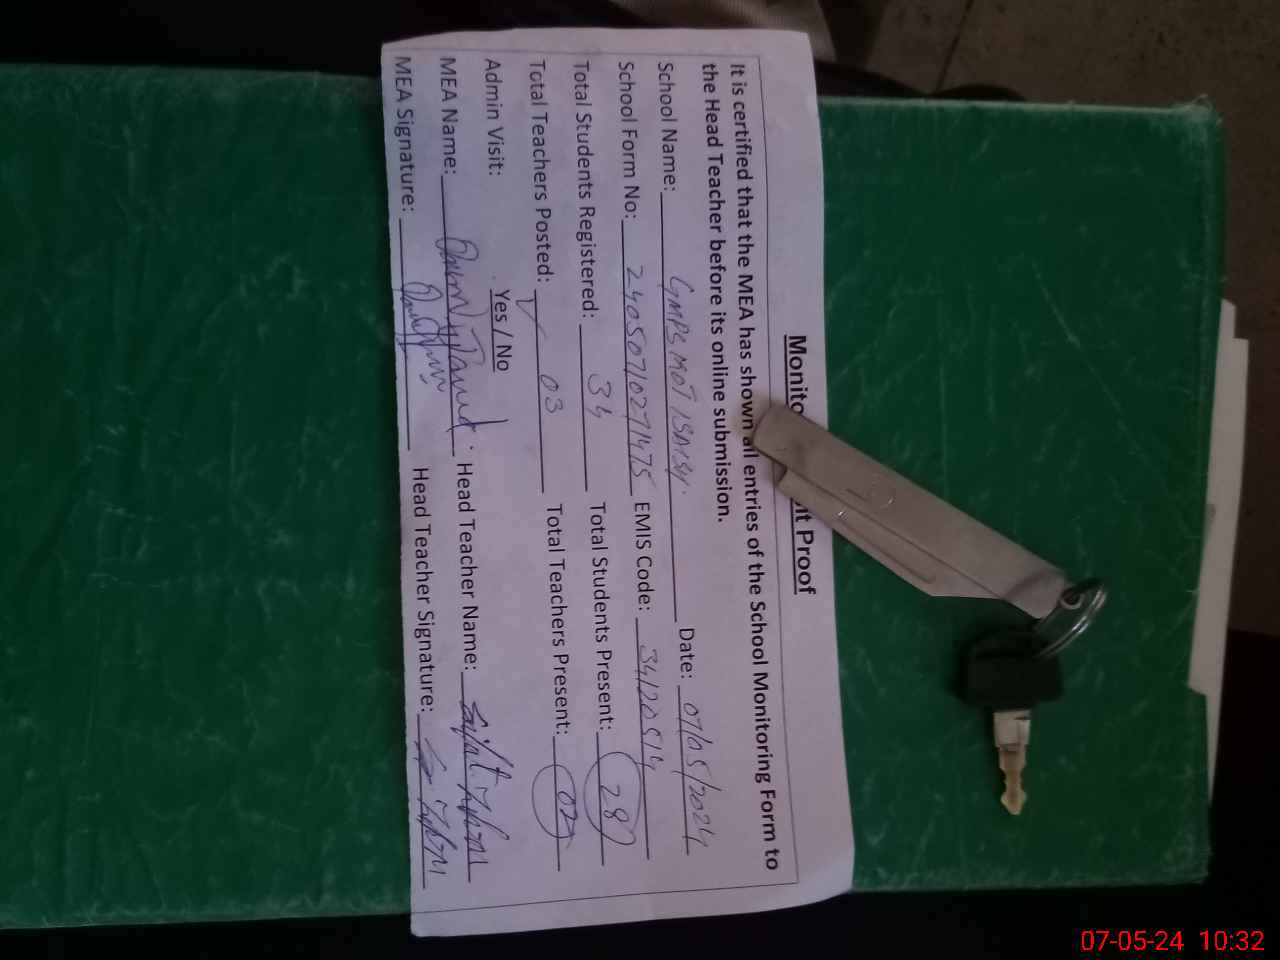 Monito nt Proof
It is certified that the MEA has shown all entries of the School Monitoring Form to
the Head Teacher before its online submission.
School Name: GMPS MOT Date: 07/05/2024
School Form No: 240507102711475 EMIS Code: 34120514
Total Students Registered: 34 Total Students Present: 28
Total Teachers Posted: 03 Total Teachers Present: 02
Admin Visit: Yes / No
MEA Name: Head Teacher Name:
MEA Signature: Head Teacher Signature:
07-05-24 10:32